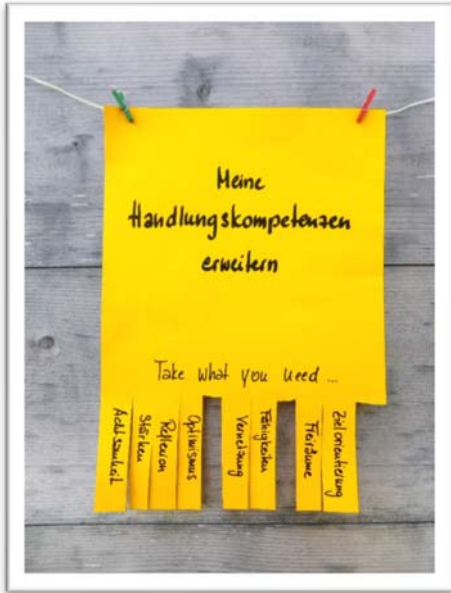 Meine
Handlungskompetenzen
erweitern
Take what you need ...
Achtsamkeit
Stärken
Reflexion
Optimismus
Vernetzung
Fähigkeiten
Freiräume
Zielorientierung